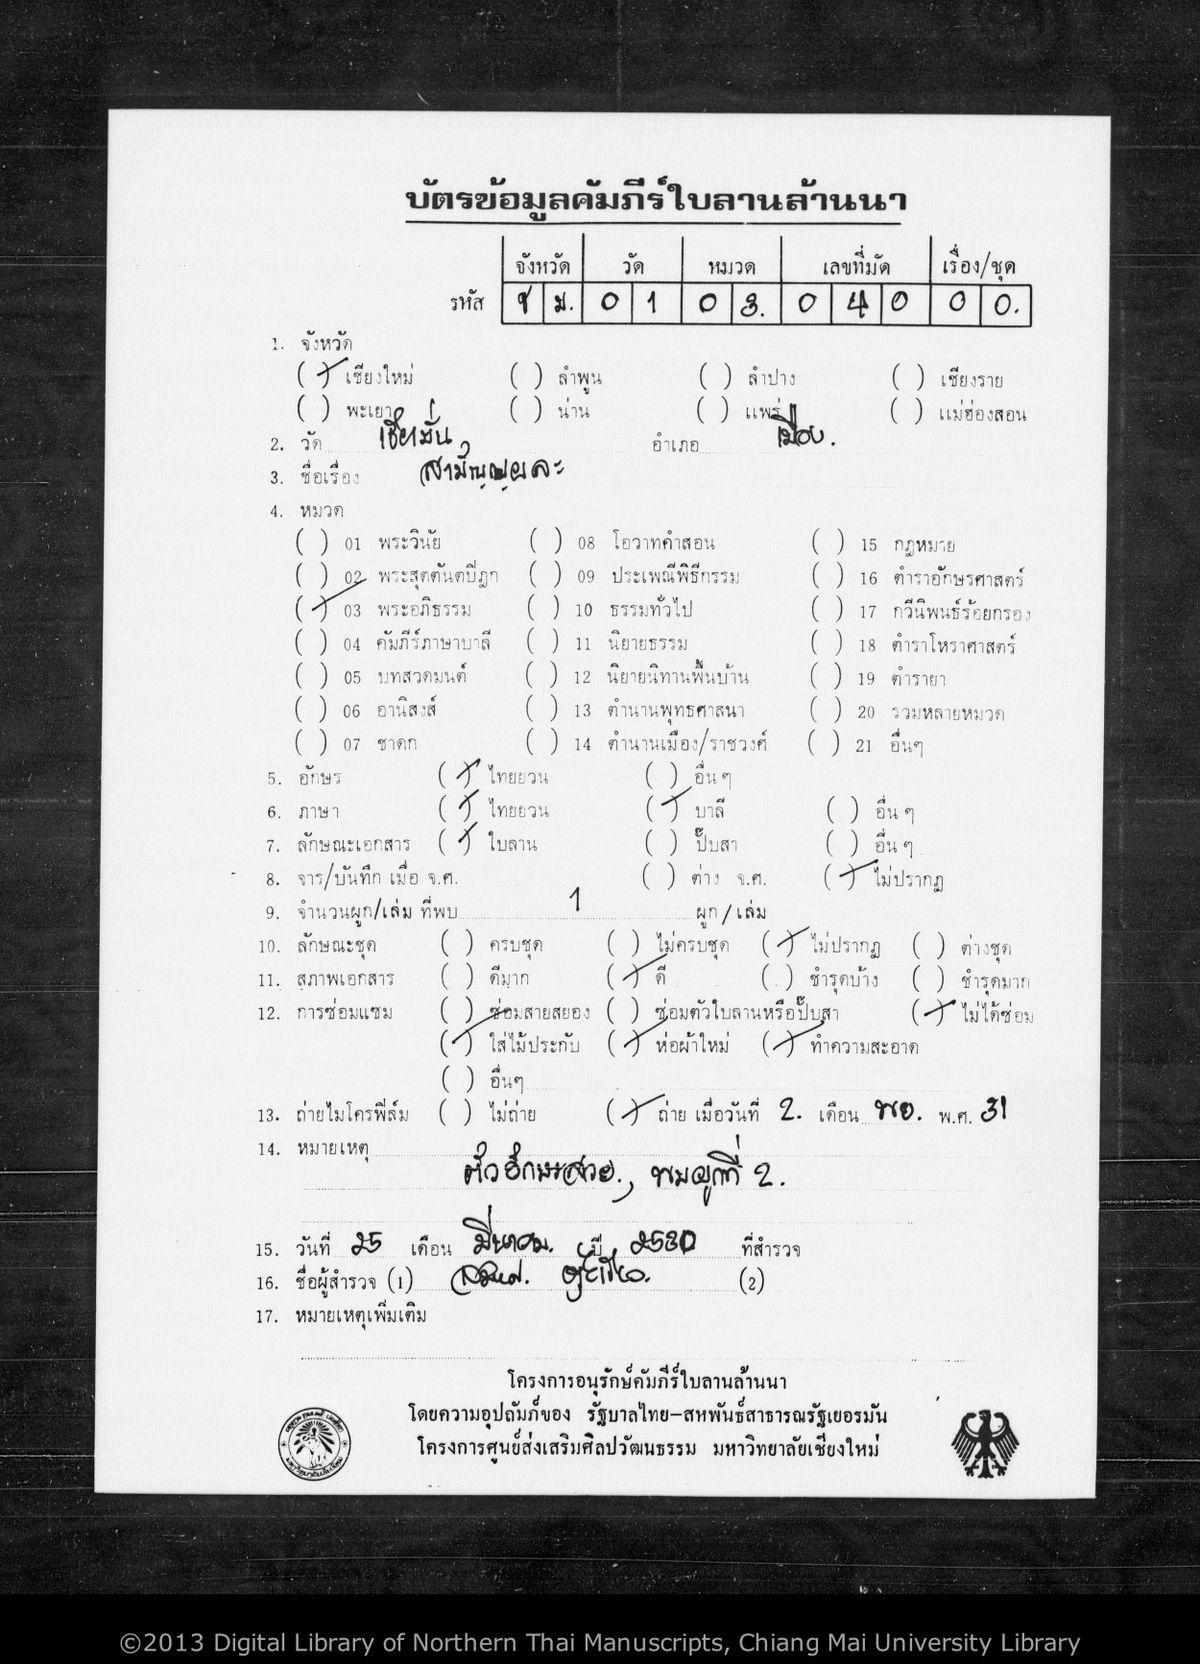 บัตรข้อมูลคัมภีร์ใบลานล้านนา
จังหวัด วัด หมวด เลขที่มัด เรื่อง/ชุด
รหัส ช ม. 0 1 0 3. 0 4 0 0 0.
1. จังหวัด
(/) เชียงใหม่ ( ) ลำพูน ( ) ลำปาง ( ) เชียงราย
( ) พะเยา ( ) น่าน ( ) แพร่ ( ) แม่ฮ่องสอน
2. วัด เชียงมั่น อำเภอ เมือง.
3. ชื่อเรื่อง สามัญญผละ
4. หมวด
( ) 01 พระวินัย ( ) 08 โอวาทคำสอน ( ) 15 กฎหมาย
( ) 02 พระสุตตันตปิฎก ( ) 09 ประเพณีพิธีกรรม ( ) 16 ตำราอักษรศาสตร์
(/) 03 พระอภิธรรม ( ) 10 ธรรมทั่วไป ( ) 17 กวีนิพนธ์ร้อยกรอง
( ) 04 คัมภีร์ภาษาบาลี ( ) 11 นิยายธรรม ( ) 18 ตำราโหราศาสตร์
( ) 05 บทสวดมนต์ ( ) 12 นิยายนิทานพื้นบ้าน ( ) 19 ตำรายา
( ) 06 อานิสงส์ ( ) 13 ตำนานพุทธศาสนา ( ) 20 รวมหลายหมวด
( ) 07 ชาดก ( ) 14 ตำนานเมือง/ราชวงศ์ ( ) 21 อื่นๆ
5. อักษร (/) ไทยยวน ( ) อื่น ๆ
6. ภาษา (/) ไทยยวน (/) บาลี ( ) อื่น ๆ
7. ลักษณะเอกสาร (/) ใบลาน ( ) ปั๊บสา ( ) อื่น ๆ
8. จาร/บันทึก เมื่อ จ.ศ. ( ) ต่าง จ.ศ. (/) ไม่ปรากฏ
9. จำนวนผูก/เล่ม ที่พบ 1 ผูก/เล่ม
10. ลักษณะชุด ( ) ครบชุด ( ) ไม่ครบชุด (/) ไม่ปรากฏ ( ) ต่างชุด
11. สภาพเอกสาร ( ) ดีมาก (/) ดี ( ) ชำรุดบ้าง ( ) ชำรุดมาก
12. การซ่อมแซม ( ) ซ่อมสายสยอง ( ) ซ่อมตัวใบลานหรือปั๊บสา (/) ไม่ได้ซ่อม
(/) ใส่ไม้ประกับ (/) ห่อผ้าใหม่ (/) ทำความสะอาด
( ) อื่นๆ
13. ถ่ายไมโครฟิล์ม ( ) ไม่ถ่าย (/) ถ่าย เมื่อวันที่ 2. เดือน พย. พ.ศ. 31
14. หมายเหตุ
ตัวอักษรสวย., พบผูกที่ 2.
15. วันที่ 25 เดือน มีนาคม. ปี 2530 ที่สำรวจ
16. ชื่อผู้สำรวจ (1) (2)
17. หมายเหตุเพิ่มเติม
โครงการอนุรักษ์คัมภีร์ใบลานล้านนา
โดยความอุปถัมภ์ของ รัฐบาลไทย-สหพันธ์สาธารณรัฐเยอรมัน
โครงการศูนย์ส่งเสริมศิลปวัฒนธรรม มหาวิทยาลัยเชียงใหม่
©2013 Digital Library of Northern Thai Manuscripts, Chiang Mai University Library